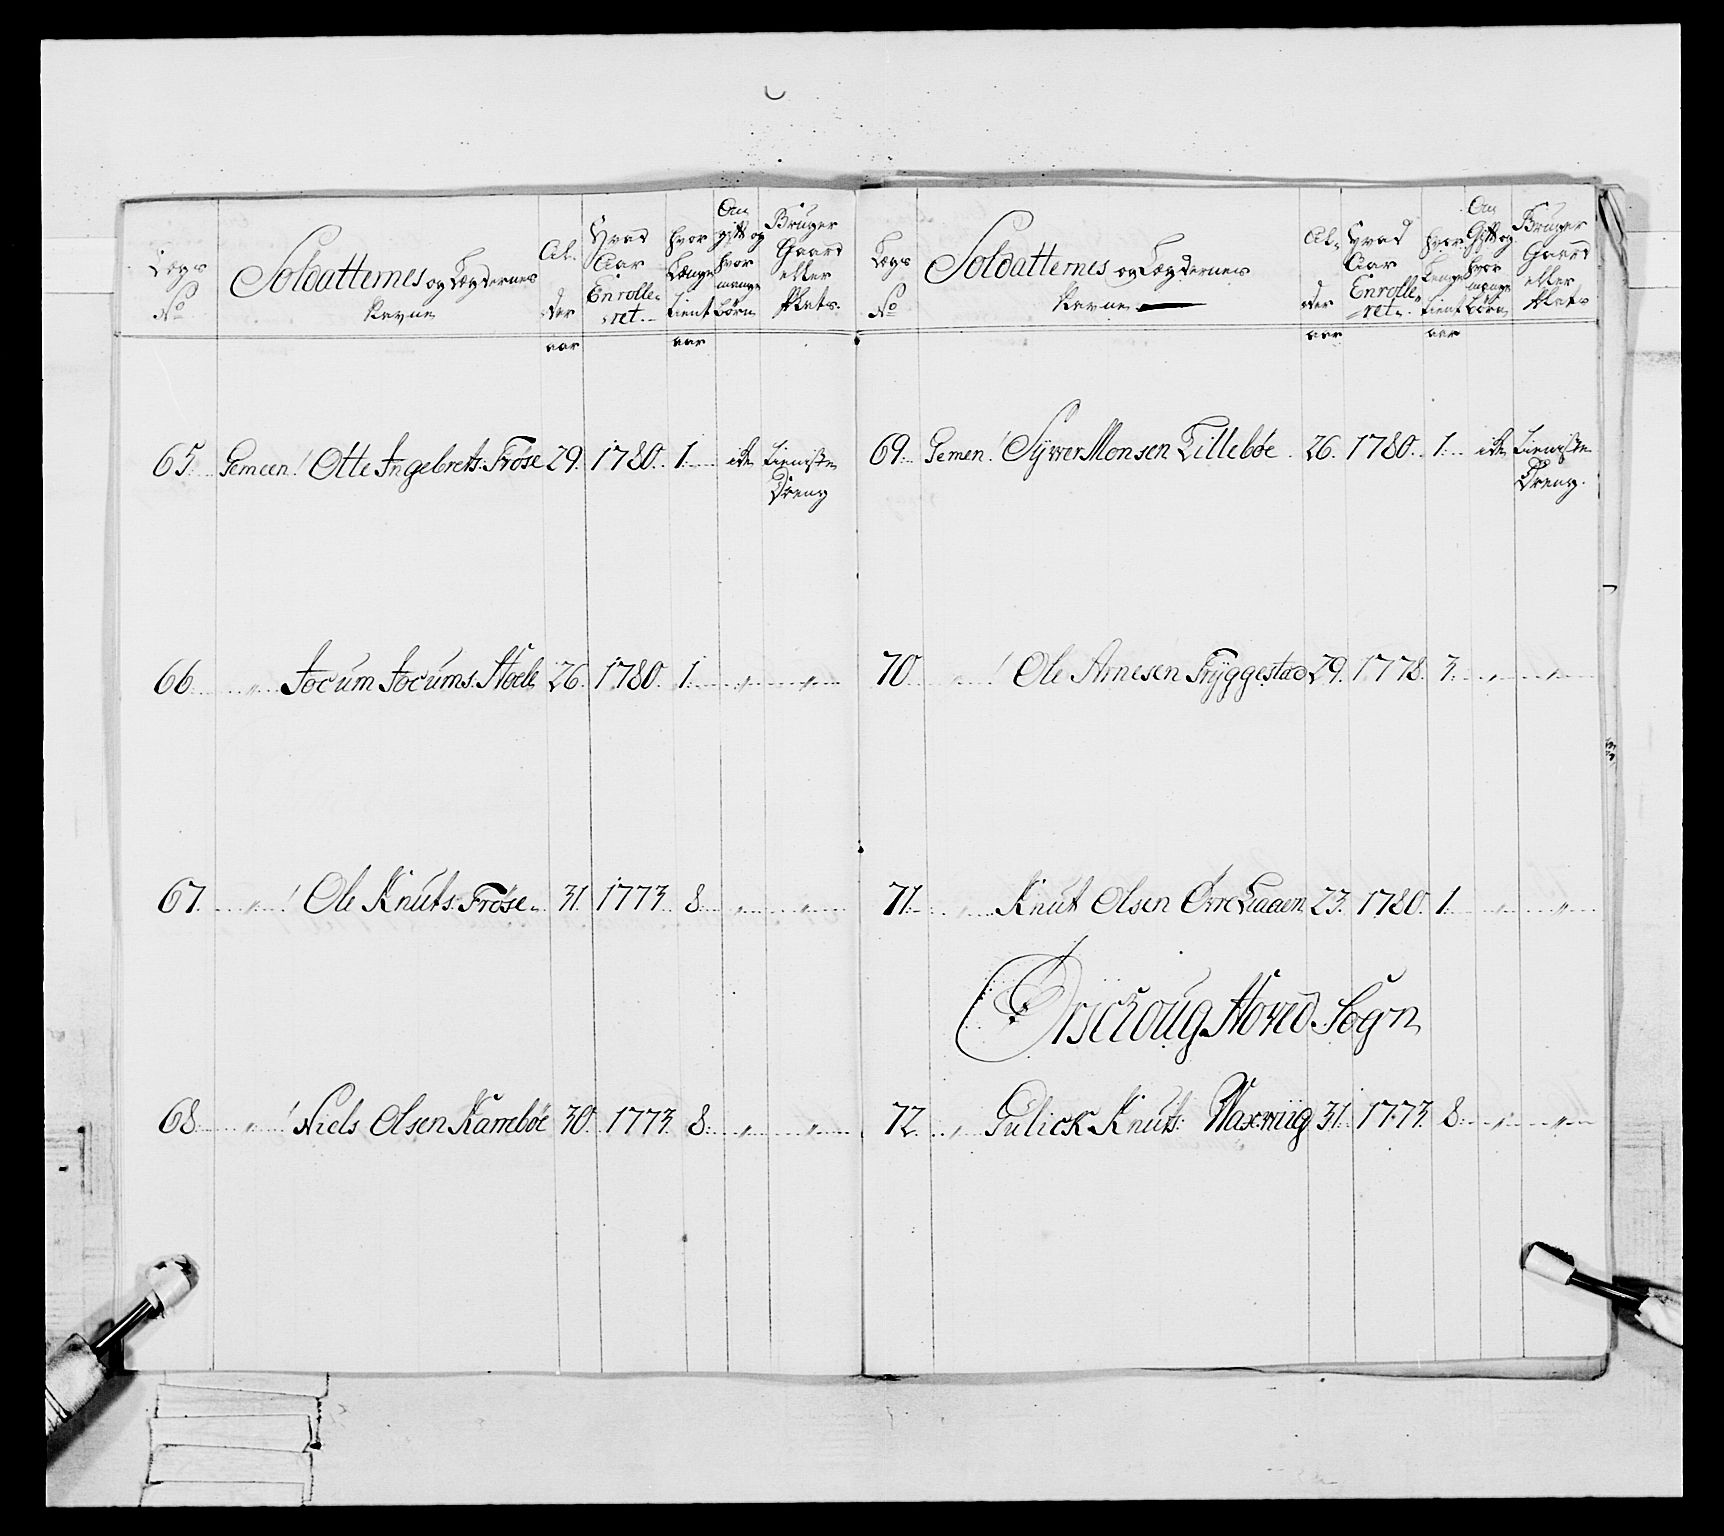 Lægs No | Soldatternes og Lægdernes Navne | Al- der aar | Hvad Aar Enrolle- ret. | Hvor Længe tient aar | Om gift og hvor mange børn | Bruger Gaard eller Plads.
65. Gemeen Otte Ingebrets. Frøse 29. 1780. 1. iche tieniste
Dreng
66 " Jocum Jocums. Hoele 26. 1780. 1. " "
67. " Ole Knuts. Frøse. 31. 1773. 8. " "
68 " Niels Olsen Karrebøe 30. 1773. 8. " "
Lægs No | Soldatternes og Lægdernes Navne | Al- der aar | Hvad Aar Enrolle- ret. | Hvor Længe tient aar | Om Gift og hvor mange børn | Bruger Gaard eller Plads
69. Gemen Syver Monsen Lillebøe 26. 1780. 1. iche tieniste
Dreng.
70 " Ole Arnesen Tryggestad 29. 1778. 3. " "
71. " Knut Olsen Øvre Liaaen 23. 1780. 1. " "
Ørschoug Hoved Sogn
72. " Gulick Knuts. Waxwiig 31. 1773. 8. " "